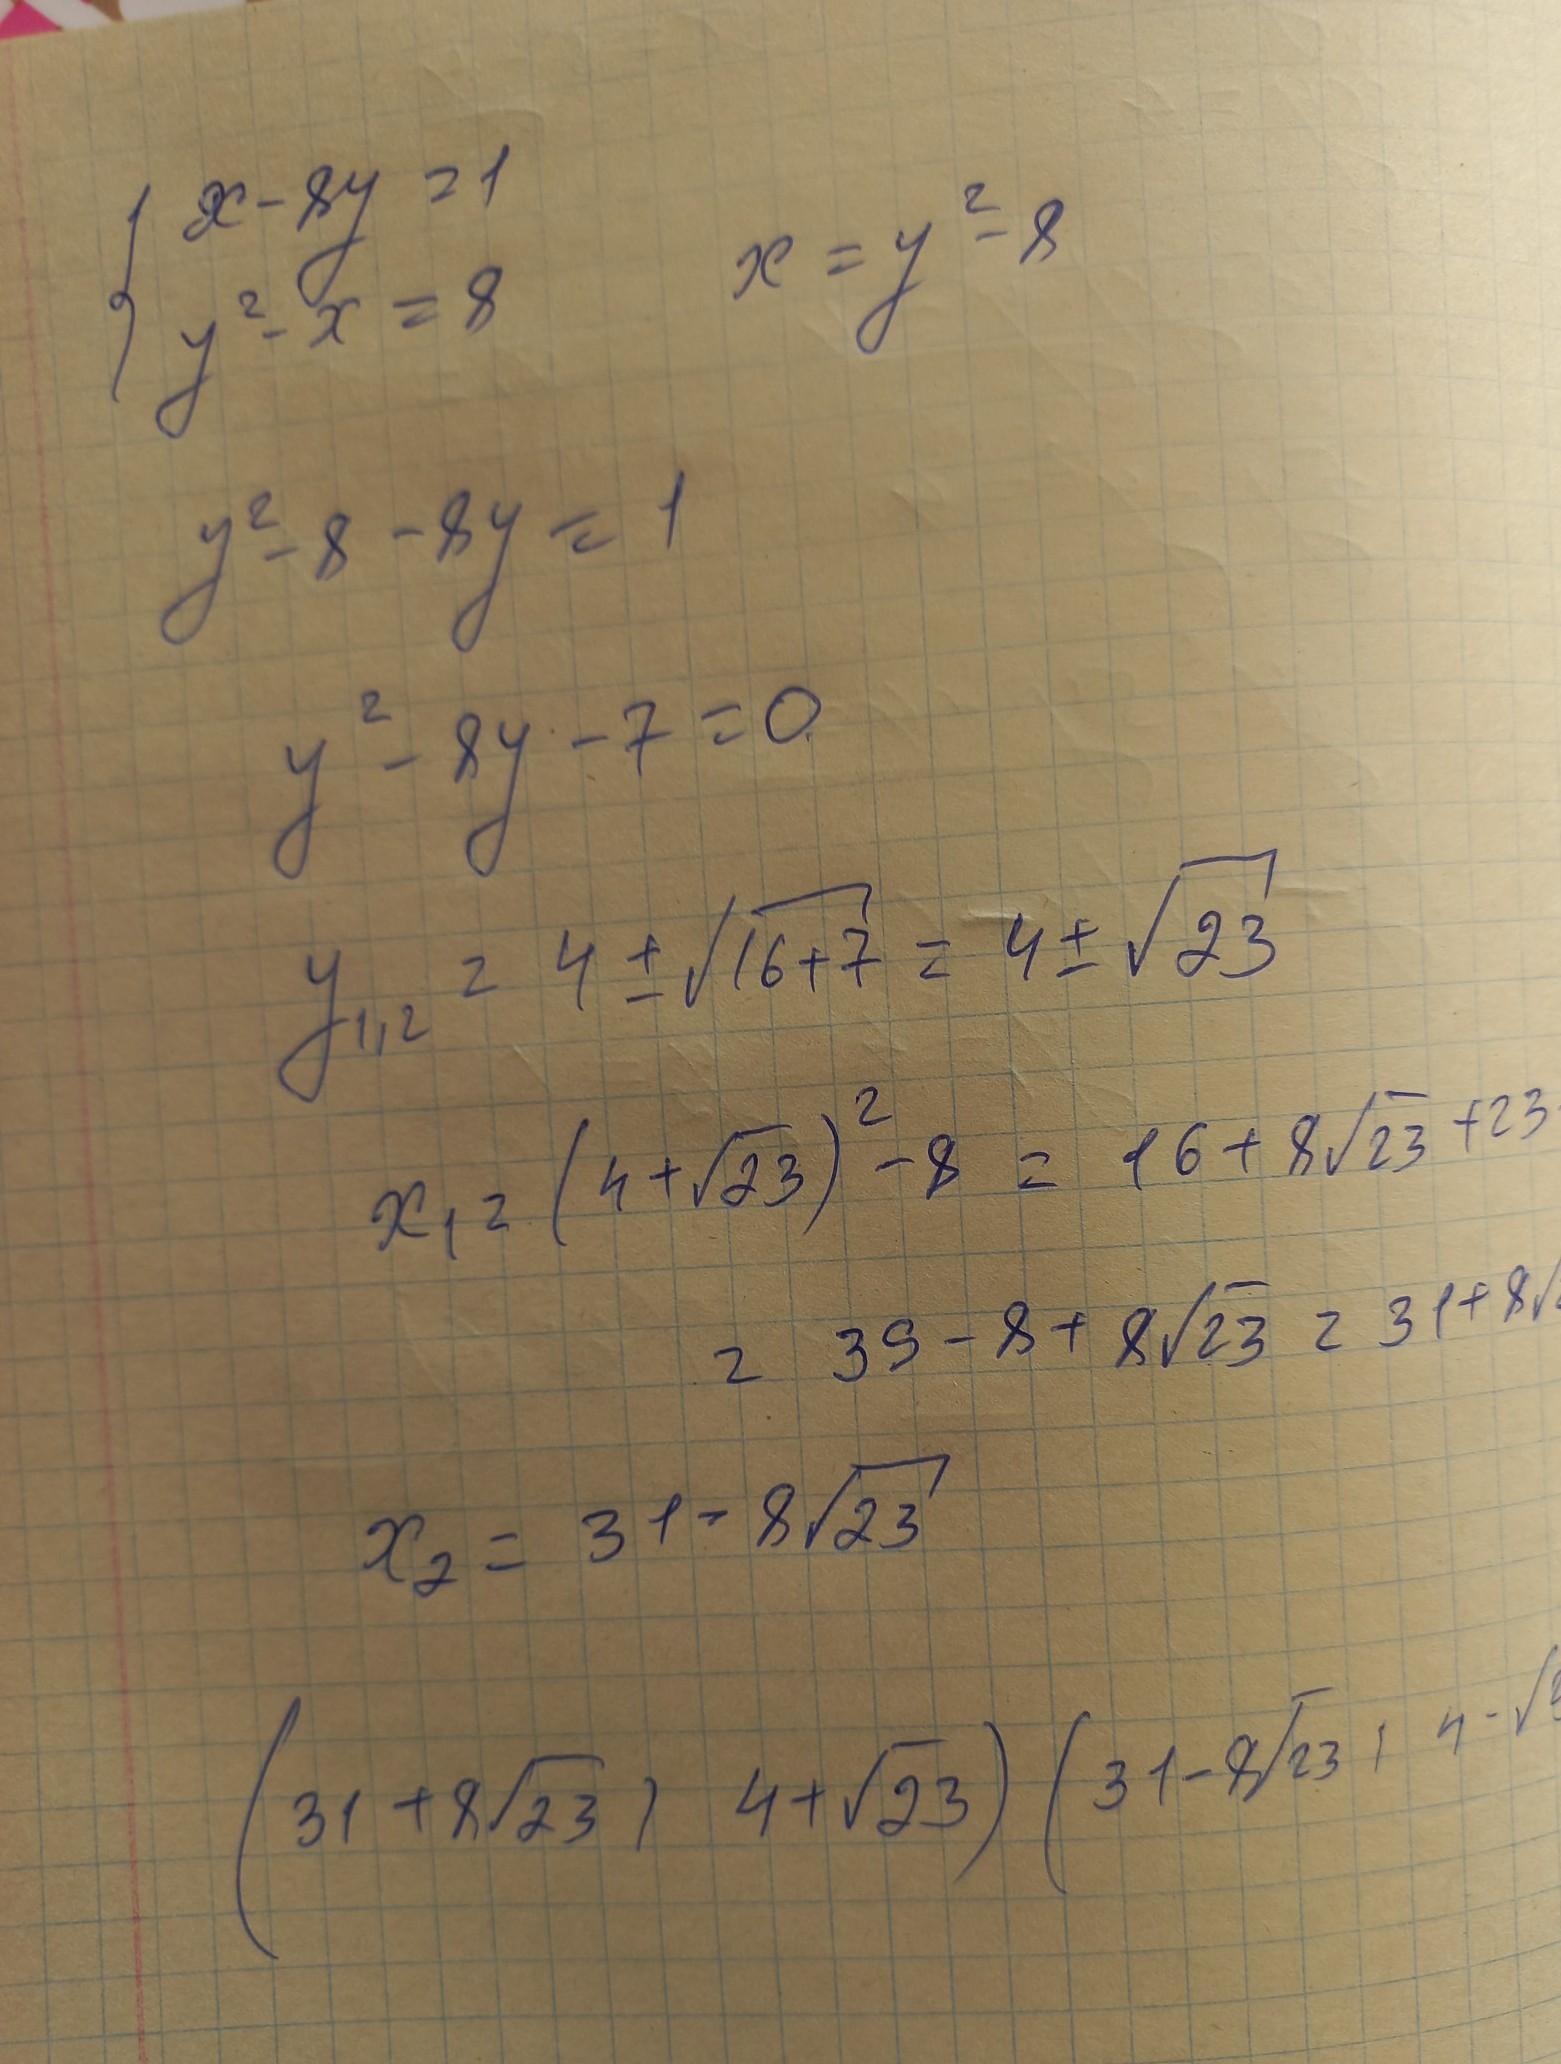 { x - 8y = 1
y² - x = 8    x = y² - 8
y² - 8 - 8y = 1
y² - 8y - 7 = 0
y₁,₂ = 4 ± √(16+7) = 4 ± √23
x₁ = (4+√23)² - 8 = 16 + 8√23 + 23
= 39 - 8 + 8√23 = 31 + 8√
x₂ = 31 - 8√23
(31 + 8√23 ; 4 + √23) (31 - 8√23 ; 4 - √